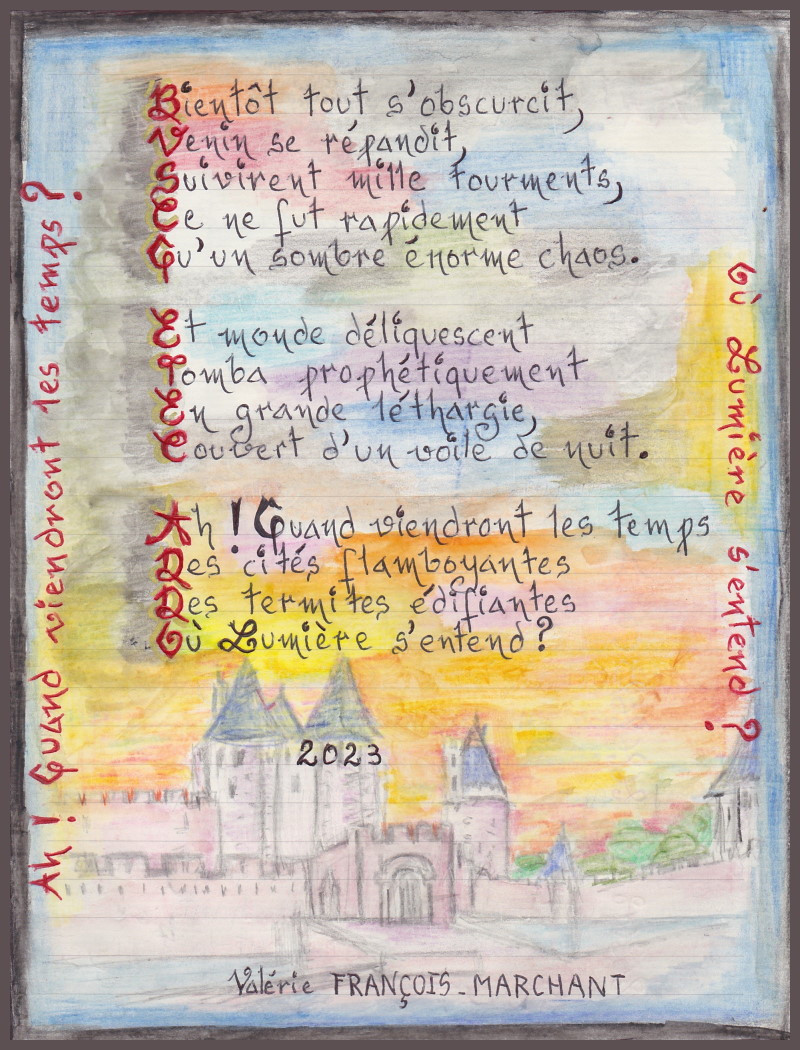 Bientôt tout s'obscurcit,
Venin se répandit,
Suivirent mille tourments,
Ce ne fut rapidement
Qu'un sombre énorme chaos.
Et monde déliquescent
Tomba prophétiquement
En grande léthargie,
Couvert d'un voile de nuit.
Ah ! Quand viendront les temps
Des cités flamboyantes
Des termites édifiantes
Où Lumière s'entend ?
2023
Valérie FRANÇOIS-MARCHANT
Ah ! Quand viendront les temps ?
Où Lumière s'entend ?